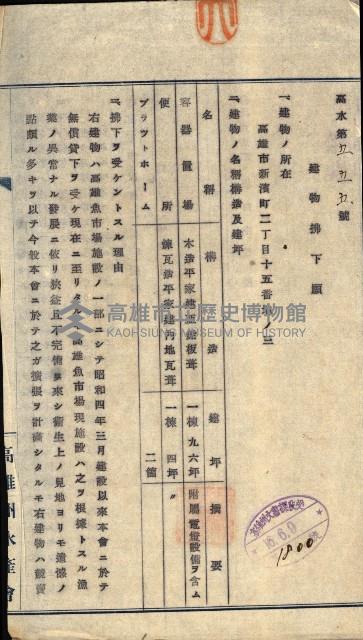 高水第五五五號
建物拂下願
一、建物ノ所在
高雄市新濱町二丁目十五番ノ三
一、建物ノ名稱構造及建坪
名稱 構造 建坪 摘要
容器置場 木造平家建亞鉛板葺 一棟 九六坪 附屬電燈設備ヲ含ム
便所 煉瓦造平家建內地瓦葺 一棟 四坪 〃
プラットホーム 二箇
一、拂下ヲ受ケントスル理由
右建物ハ高雄魚市場施設ノ一部ニシテ昭和四年三月建設以來本會ニ於テ
無償貸下ヲ受ケ現在ニ至リタル高雄魚市場現施設ハ之ヲ根據トスル漁
業ノ異常ナル發展ニ依リ狹益且不完備ヲ來シ衞生上ノ見地ヨリモ遺憾ノ
點頗ル多キヲ以テ今般本會ニ於テ之ガ擴張ヲ計畫シタルモ右建物ハ競賣
高雄州水產會
高雄市立歷史博物館
KAOHSIUNG MUSEUM OF HISTORY
16.6.9
1800